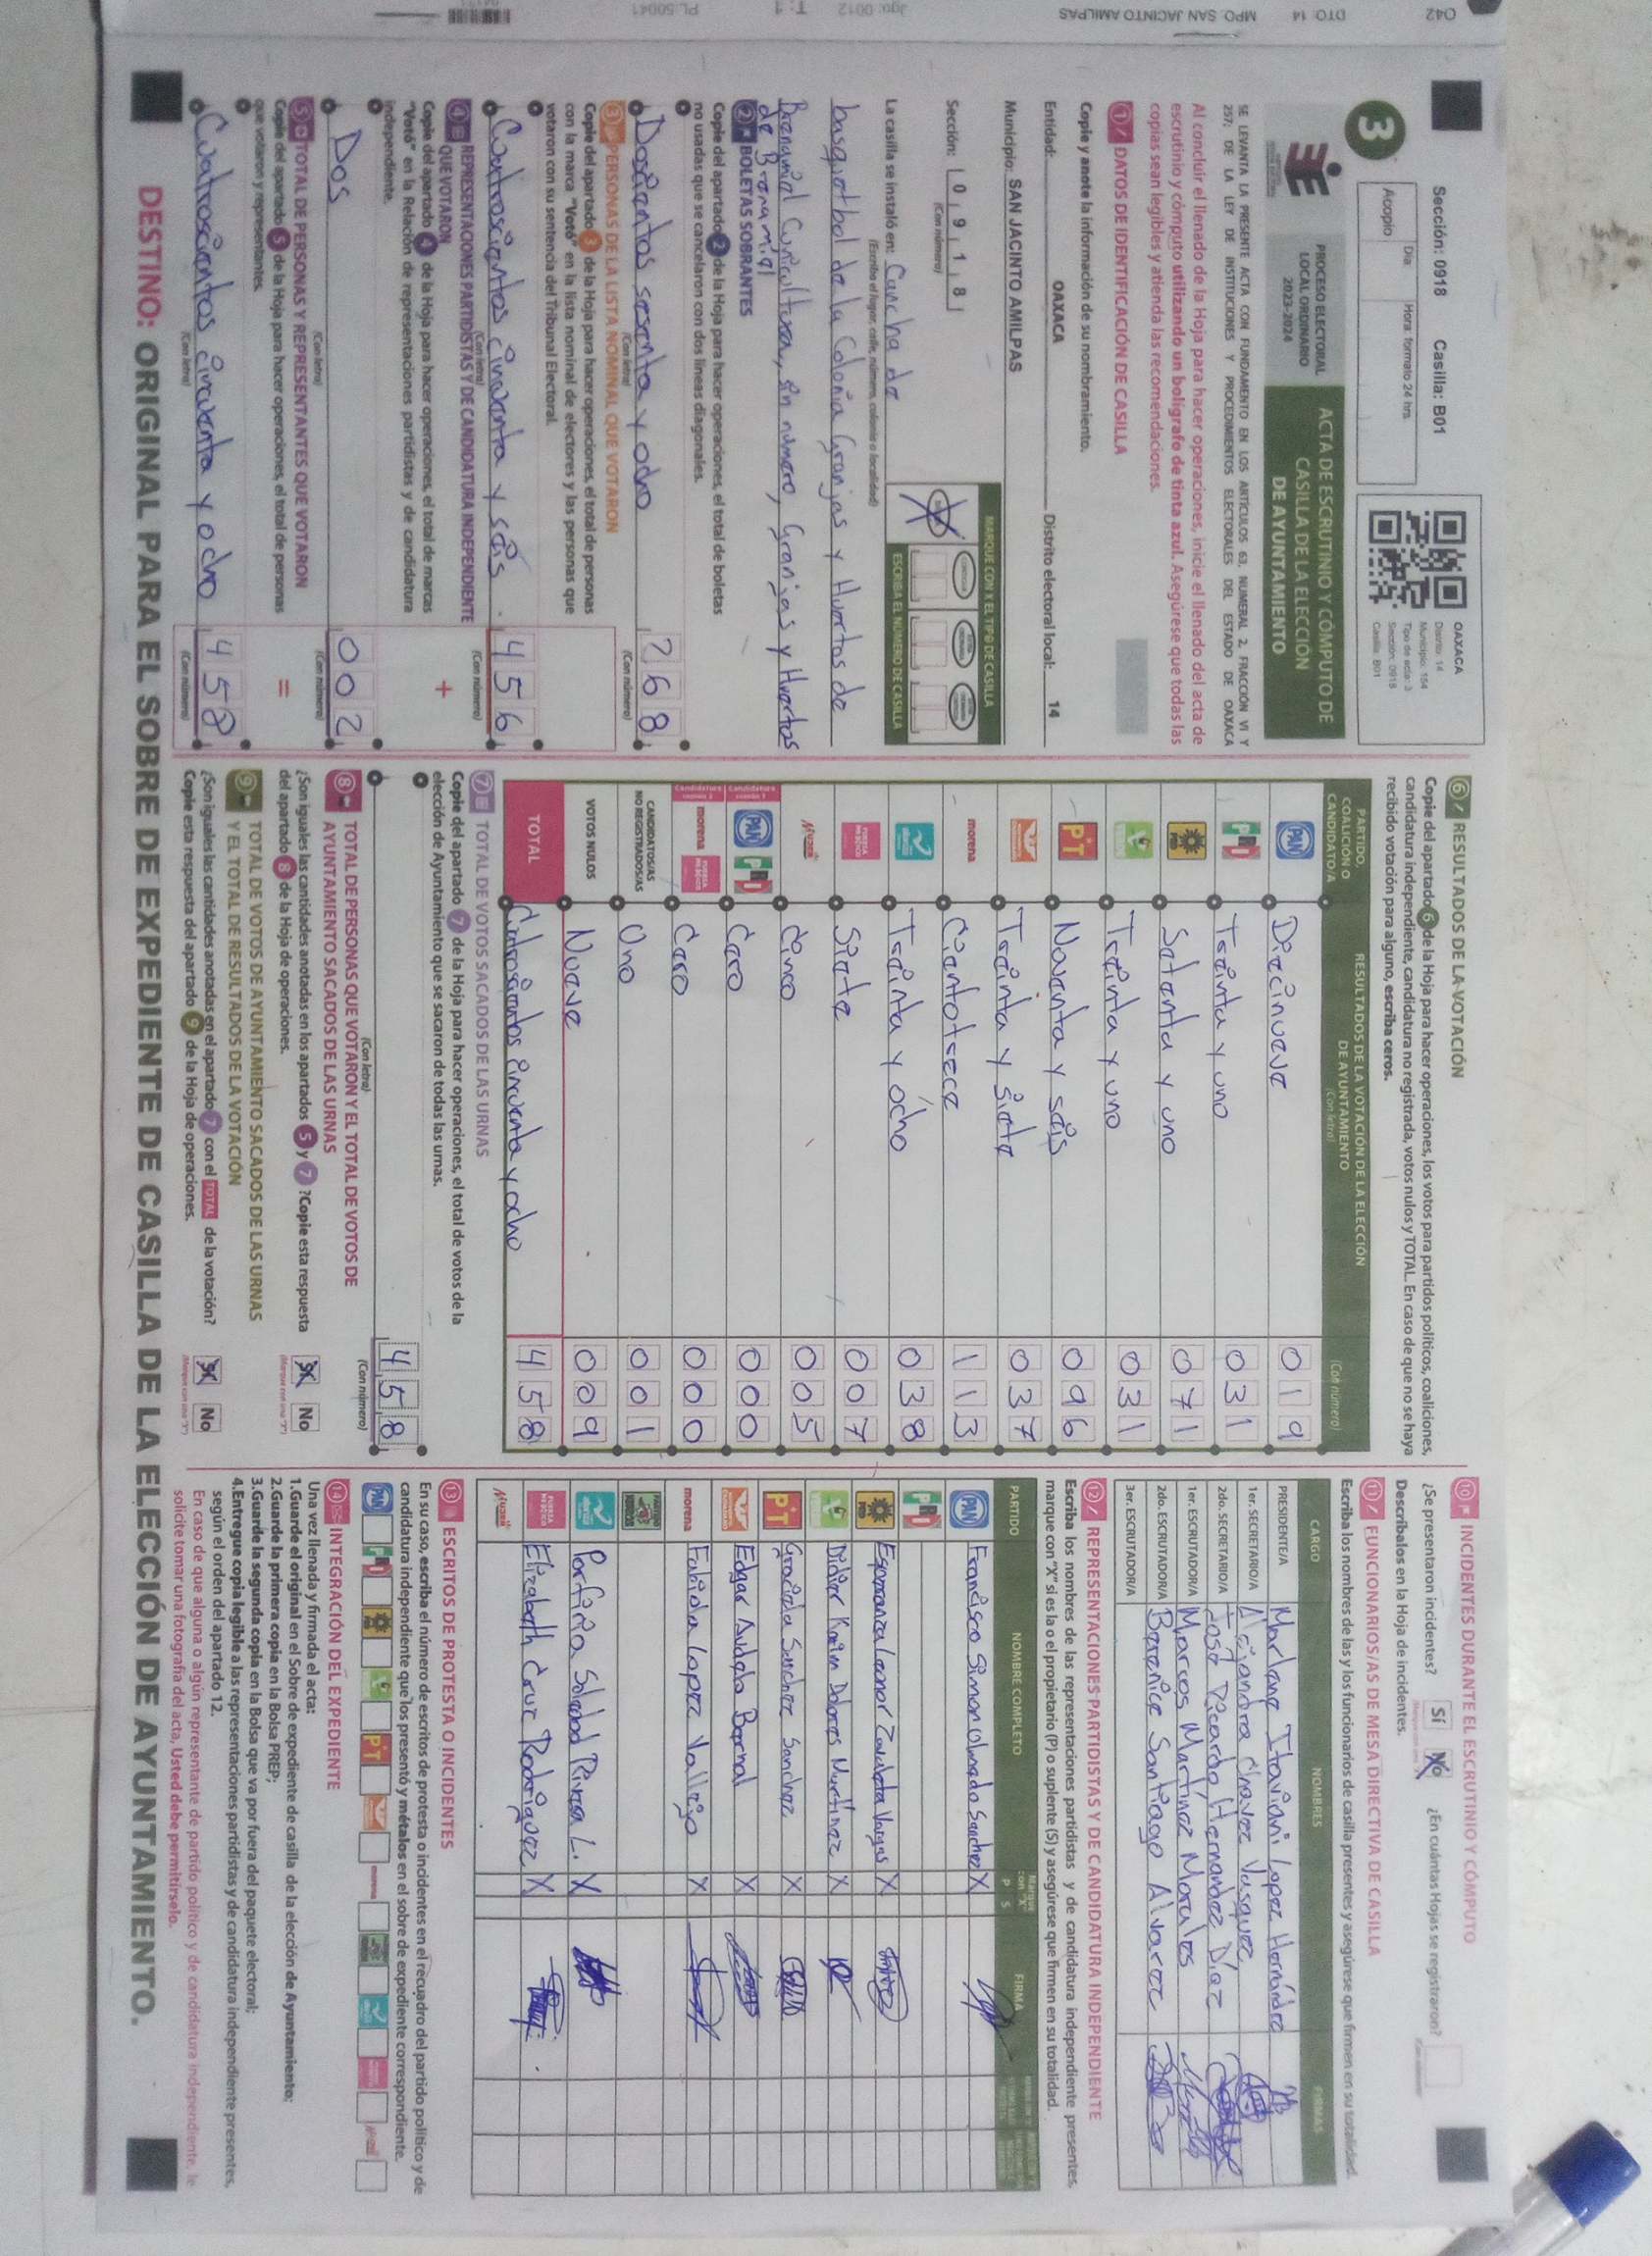 Sección: 0918 Casilla: B01
Acopio
Día Hora: formato 24 hrs.
OAXACA
Distrito: 14
Municipio: 164
Tipo de acta: 3
Sección: 0918
Casilla: B01
3
PROCESO ELECTORAL
LOCAL ORDINARIO
2023-2024
ACTA DE ESCRUTINIO Y CÓMPUTO DE
CASILLA DE LA ELECCIÓN
DE AYUNTAMIENTO
SE LEVANTA LA PRESENTE ACTA CON FUNDAMENTO EN LOS ARTÍCULOS 63, NUMERAL 2, FRACCIÓN VI Y
257; DE LA LEY DE INSTITUCIONES Y PROCEDIMIENTOS ELECTORALES DEL ESTADO DE OAXACA
Al concluir el llenado de la Hoja para hacer operaciones, inicie el llenado del acta de
escrutinio y cómputo utilizando un bolígrafo de tinta azul. Asegúrese que todas las
copias sean legibles y atienda las recomendaciones.
1 DATOS DE IDENTIFICACIÓN DE CASILLA
Copie y anote la información de su nombramiento.
Entidad: OAXACA Distrito electoral local: 14
Municipio: SAN JACINTO AMILPAS
Sección: 0918
(Con número)
MARQUE CON X EL TIPO DE CASILLA
ESCRIBA EL NÚMERO DE CASILLA
La casilla se instaló en: Cancha de
(Escriba el lugar, calle, número, colonia o localidad)
basquetbol de la Colonia Granjas y Huertos de
Brenamiel Curicultura, sin numero, Granjas y Huertos
de Brenamiel
2 BOLETAS SOBRANTES
Copie del apartado 2 de la Hoja para hacer operaciones, el total de boletas
no usadas que se cancelaron con dos líneas diagonales.
Doscientos sesenta y ocho 268
(Con letra) (Con número)
3 PERSONAS DE LA LISTA NOMINAL QUE VOTARON
Copie del apartado 3 de la Hoja para hacer operaciones, el total de personas
con la marca "Votó" en la lista nominal de electores y las personas que
votaron con su sentencia del Tribunal Electoral.
Cuatroscientos cincuenta y seis. 456
(Con letra) (Con número)
4 REPRESENTACIONES PARTIDISTAS Y DE CANDIDATURA INDEPENDIENTE
QUE VOTARON
Copie del apartado 4 de la Hoja para hacer operaciones, el total de marcas
"Votó" en la Relación de representaciones partidistas y de candidatura
independiente.
+
Dos 002
(Con letra) (Con número)
5 TOTAL DE PERSONAS Y REPRESENTANTES QUE VOTARON
Copie del apartado 5 de la Hoja para hacer operaciones, el total de personas
que votaron y representantes.
=
Cuatroscientos cincuenta y ocho 458
(Con letra) (Con número)
6 RESULTADOS DE LA VOTACIÓN
Copie del apartado 6 de la Hoja para hacer operaciones, los votos para partidos políticos, coaliciones,
candidatura independiente, candidatura no registrada, votos nulos y TOTAL. En caso de que no se haya
recibido votación para alguno, escriba ceros.
PARTIDO,
COALICIÓN O
CANDIDATO/A
RESULTADOS DE LA VOTACIÓN DE LA ELECCIÓN
DE AYUNTAMIENTO
(Con letra) (Con número)
PAN Diecinueve 019
PRI Treinta y uno 031
PRD Setenta y uno 071
Treinta y uno 031
PT Noventa y seis 096
Treinta y siete 037
morena Cientotrece 113
Treinta y ocho 038
FUERZA POR MÉXICO Siete 007
MUJER Cinco 005
PAN PRI Cero 000
morena FUERZA POR MÉXICO Cero 000
CANDIDATOS/AS
NO REGISTRADOS/AS Uno 001
VOTOS NULOS Nueve 009
TOTAL Cuatroscientos cincuenta y ocho 458
7 TOTAL DE VOTOS SACADOS DE LAS URNAS
Copie del apartado 7 de la Hoja para hacer operaciones, el total de votos de la
elección de Ayuntamiento que se sacaron de todas las urnas.
458
(Con letra) (Con número)
8 TOTAL DE PERSONAS QUE VOTARON Y EL TOTAL DE VOTOS DE
AYUNTAMIENTO SACADOS DE LAS URNAS
¿Son iguales las cantidades anotadas en los apartados 5 y 7? Copie esta respuesta
del apartado 8 de la Hoja de operaciones.
Sí No
9 TOTAL DE VOTOS DE AYUNTAMIENTO SACADOS DE LAS URNAS
Y EL TOTAL DE RESULTADOS DE LA VOTACIÓN
¿Son iguales las cantidades anotadas en el apartado 7 con el TOTAL de la votación?
Copie esta respuesta del apartado 9 de la Hoja de operaciones.
Sí No
10 INCIDENTES DURANTE EL ESCRUTINIO Y CÓMPUTO
¿Se presentaron incidentes? Sí No ¿En cuántas Hojas se registraron?
Descríbalos en la Hoja de incidentes.
11 FUNCIONARIOS/AS DE MESA DIRECTIVA DE CASILLA
Escriba los nombres de las y los funcionarios de casilla presentes y asegúrese que firmen en su totalidad.
CARGO NOMBRES FIRMAS
PRESIDENTE/A Marlene Itaviani Lopez Hernández
1er. SECRETARIO/A Alejandra Chavez Vasquez
2do. SECRETARIO/A José Ricardo Hernandez Díaz
1er. ESCRUTADOR/A Marcos Martínez Morales
2do. ESCRUTADOR/A Berenice Santiago Alvarez
3er. ESCRUTADOR/A
12 REPRESENTACIONES PARTIDISTAS Y DE CANDIDATURA INDEPENDIENTE
Escriba los nombres de las representaciones partidistas y de candidatura independiente presentes,
marque con "X" si es la o el propietario (P) o suplente (S) y asegúrese que firmen en su totalidad.
PARTIDO NOMBRE COMPLETO Marque con "X" P S FIRMA
PAN Francisco Simon Olmedo Sanchez X
PRI
PRD Esperanza Leonor Zavaleta Vargas X
Didier Karim Dolores Martínez X
PT Graciela Sanchez Sanchez X
Edgar Audelo Bernal X
morena Fabiola Lopez Vallejo X
Porfiria Soledad Rivera L. X
FUERZA POR MÉXICO Elizabeth Cruz Rodriguez X
MUJER
13 ESCRITOS DE PROTESTA O INCIDENTES
En su caso, escriba el número de escritos de protesta o incidentes en el recuadro del partido político y de
candidatura independiente que los presentó y métalos en el sobre de expediente correspondiente.
PAN PRI PRD PT
14 INTEGRACIÓN DEL EXPEDIENTE
Una vez llenada y firmada el acta:
1.Guarde el original en el Sobre de expediente de casilla de la elección de Ayuntamiento;
2.Guarde la primera copia en la Bolsa PREP;
3.Guarde la segunda copia en la Bolsa que va por fuera del paquete electoral;
4.Entregue copia legible a las representaciones partidistas y de candidatura independiente presentes,
según el orden del apartado 12.
En caso de que alguna o algún representante de partido político y de candidatura independiente, le
solicite tomar una fotografía del acta, Usted debe permitírselo.
DESTINO: ORIGINAL PARA EL SOBRE DE EXPEDIENTE DE CASILLA DE LA ELECCIÓN DE AYUNTAMIENTO.
042 DTO. 14 MPO. SAN JACINTO AMILPAS
Jgo: 0012 T: 1 PL-50041